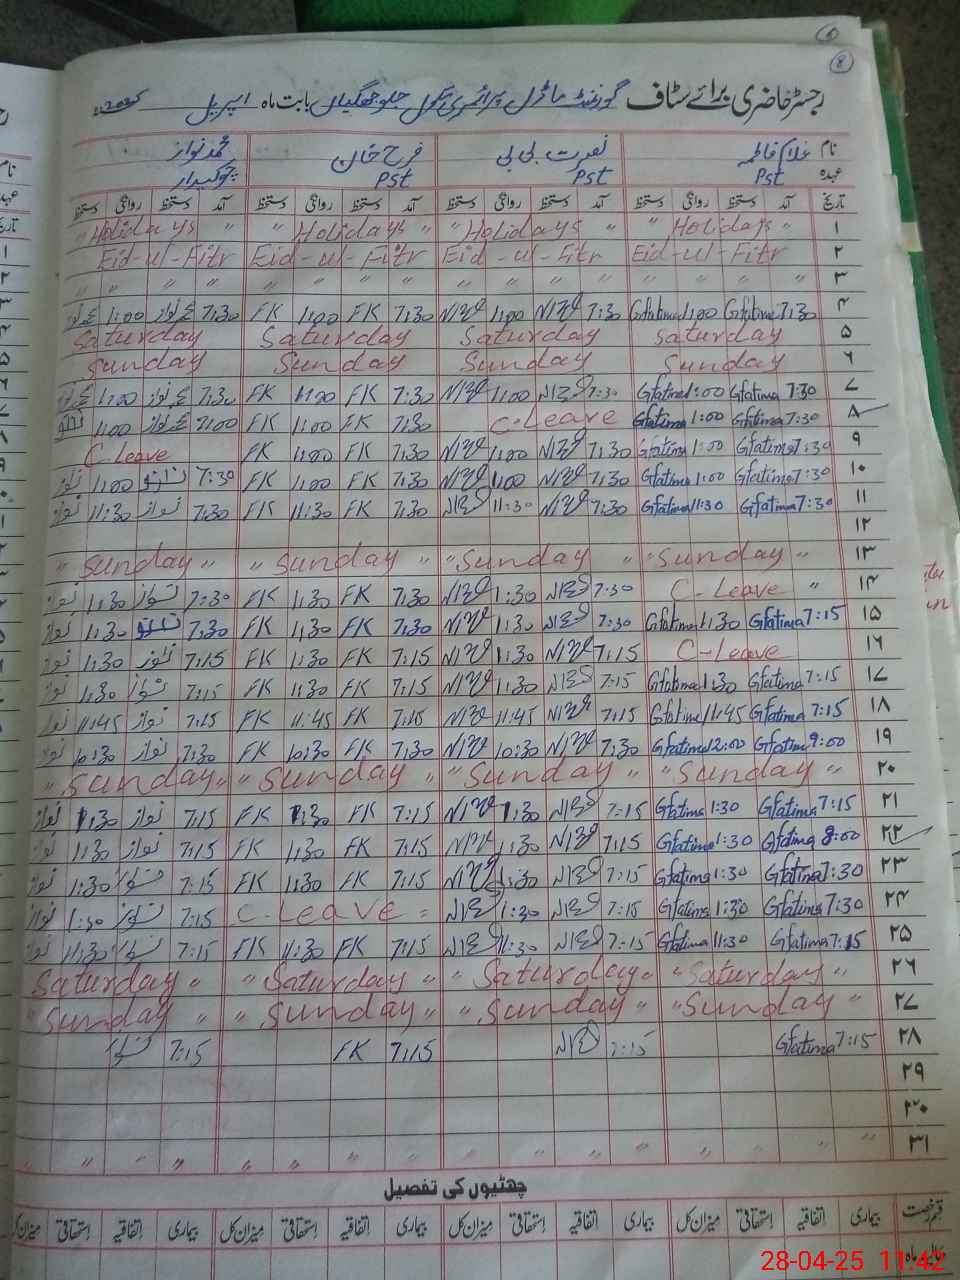 رجسٹر حاضری برائے سٹاف گورنمنٹ ماڈل پرائمری سکول جلو جھگیاں بابت ماہ اپریل 2025ء
نام غلام فاطمہ نصرت بی بی فرح خان محمد نواز
عہدہ Pst Pst Pst چوکیدار
تاریخ آمد دستخط روانگی دستخط آمد دستخط روانگی دستخط آمد دستخط روانگی دستخط آمد دستخط روانگی دستخط
" Holidays " " Holidays " " Holidays " " Holidays " ۱
Eid-ul-Fitr Eid-ul-Fitr Eid-ul-Fitr Eid-ul-Fitr ۲
" " " " " " " " " " " " " " ۳
1:00 7:30 FK 1:00 FK 7:30 1:00 7:30 Gfatima 1:00 Gfatima 7:30 ۴
Saturday Saturday Saturday Saturday ۵
Sunday Sunday Sunday Sunday ۶
1:00 7:30 FK 1:00 FK 7:30 1:00 7:30 Gfatima 1:00 Gfatima 7:30 ۷
1:00 7:00 FK 1:00 FK 7:30 C-Leave Gfatima 1:00 Gfatima 7:30 ۸
C-Leave FK 1:00 FK 7:30 1:00 7:30 Gfatima 1:00 Gfatima 7:30 ۹
نواز 1:00 نواز 7:30 FK 1:00 FK 7:30 1:00 7:30 Gfatima 1:00 Gfatima 7:30 ۱۰
نواز 11:30 نواز 7:30 FK 11:30 FK 7:30 11:30 7:30 Gfatima 11:30 Gfatima 7:30 ۱۱
۱۲
" Sunday " Sunday " Sunday " " Sunday " ۱۳
نواز 1:30 نواز 7:30 FK 1:30 FK 7:30 1:30 7:30 C-Leave " ۱۴
نواز 1:30 نواز 7:30 FK 1:30 FK 7:30 1:30 7:30 Gfatima 1:30 Gfatima 7:15 ۱۵
نواز 1:30 نواز 7:15 FK 1:30 FK 7:15 1:30 7:15 C-Leave ۱۶
نواز 1:30 نواز 7:15 FK 1:30 FK 7:15 1:30 7:15 Gfatima 1:30 Gfatima 7:15 ۱۷
نواز 11:45 نواز 7:15 FK 11:45 FK 7:15 11:45 7:15 Gfatima 11:45 Gfatima 7:15 ۱۸
نواز 10:30 نواز 7:30 FK 10:30 FK 7:30 10:30 7:30 Gfatima 12:00 Gfatima 9:00 ۱۹
" Sunday " " Sunday " " Sunday " " Sunday " ۲۰
نواز 1:30 نواز 7:15 FK 1:30 FK 7:15 1:30 7:15 Gfatima 1:30 Gfatima 7:15 ۲۱
نواز 1:30 نواز 7:15 FK 1:30 FK 7:15 1:30 7:15 Gfatima 1:30 Gfatima 8:00 ۲۲
نواز 1:30 نواز 7:15 FK 1:30 FK 7:15 1:30 7:15 Gfatima 1:30 Gfatima 7:30 ۲۳
نواز 1:30 نواز 7:15 C-Leave 1:30 7:15 Gfatima 1:30 Gfatima 7:30 ۲۴
نواز 11:30 نواز 7:15 FK 11:30 FK 7:15 11:30 7:15 Gfatima 11:30 Gfatima 7:15 ۲۵
Saturday " " Saturday " " Saturday " " Saturday " ۲۶
" Sunday " " Sunday " " Sunday " " Sunday " ۲۷
نواز 7:15 FK 7:15 7:15 Gfatima 7:15 ۲۸
۲۹
۳۰
" " " " " " " " " " " " ۳۱
چھٹیوں کی تفصیل
قسم رخصت بیماری اتفاقیہ استحقاقی میزان کل بیماری اتفاقیہ استحقاقی میزان کل بیماری اتفاقیہ استحقاقی میزان کل بیماری اتفاقیہ استحقاقی میزان کل
28-04-25 11:42